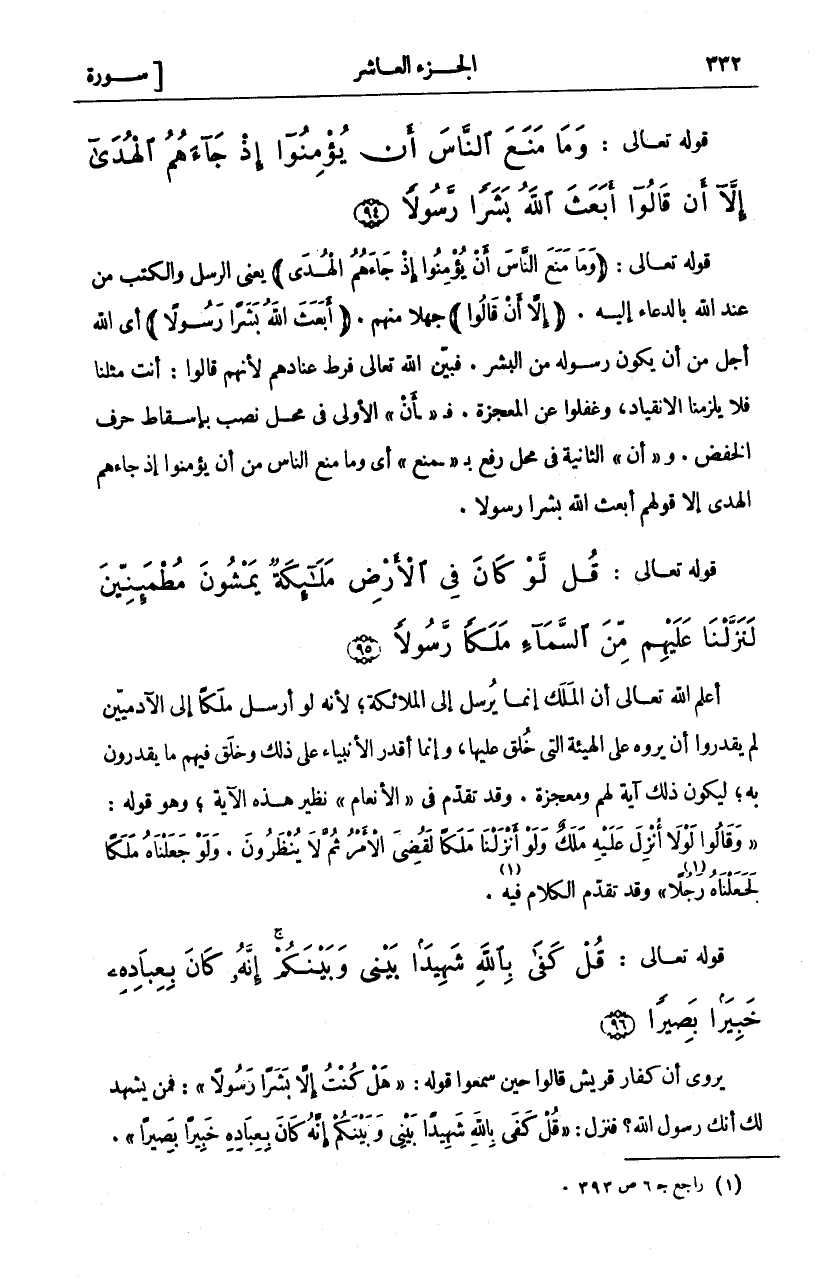 ٣٣٢ الجـزء العـاشر [ ســورة
قوله تعـالى : وَمَا مَنَعَ ٱلنَّاسَ أَن يُؤْمِنُوٓا إِذْ جَآءَهُمُ ٱلْهُدَىٰٓ
إِلَّآ أَن قَالُوٓا أَبَعَثَ ٱللَّهُ بَشَرًا رَّسُولًا ﴿٩٤﴾
قوله تعـالى : ﴿وَمَا مَنَعَ النَّاسَ أَنْ يُؤْمِنُوا إِذْ جَاءَهُمُ الْهُـدَى﴾ يعنى الرسل والكتب من
عند الله بالدعاء إليـه . ﴿ إِلَّا أَنْ قَالُوا ﴾ جهلا منهم . ﴿ أَبَعَثَ اللهُ بَشَرًا رَسُـولًا ﴾ أى الله
أجل من أن يكون رسـوله من البشر . فبيّن الله تعالى فرط عنادهم لأنهم قالوا : أنت مثلنا
فلا يلزمنا الانقياد، وغفلوا عن المعجزة . فـ « ـأَنْ » الأولى فى محـل نصب بإسـقاط حرف
الخفض . و « أن » الثانية فى محل رفع بـ « ـمنع » أى وما منع الناس من أن يؤمنوا إذ جاءهم
الهدى إلا قولهم أبعث الله بشرا رسولا .
قوله تعـالى : قُـل لَّوْ كَانَ فِى ٱلْأَرْضِ مَلَـٰٓئِكَةٌ يَمْشُونَ مُطْمَئِنِّينَ
لَنَزَّلْنَا عَلَيْهِم مِّنَ ٱلسَّمَآءِ مَلَكًا رَّسُولًا ﴿٩٥﴾
أعلم الله تعـالى أن المَلَك إنمـا يُرسل إلى الملائكة؛ لأنه لو أرسـل ملَكًا إلى الآدميّين
لم يقدروا أن يروه على الهيئة التى خُلق عليها، وإنما أقدر الأنبياء على ذلك وخلَق فيهم ما يقدرون
به؛ ليكون ذلك آية لهم ومعجزة . وقد تقدّم فى « الأنعام » نظير هـذه الآية ؛ وهو قوله :
« وَقَالُوا لَوْلَا أُنْزِلَ عَلَيْهِ مَلَكٌ وَلَوْ أَنْزَلْنَا مَلَكًا لَقُضِىَ الْأَمْرُ ثُمَّ لَا يُنْظَرُونَ . وَلَوْ جَعَلْنَاهُ مَلَكًا
لَجَعَلْنَاهُ رَجُلًا» (١) وقد تقدّم الكلام فيه (١) .
قوله تعـالى : قُلْ كَفَىٰ بِٱللَّهِ شَهِيدًۢا بَيْنِى وَبَيْنَكُمْ ۚ إِنَّهُۥ كَانَ بِعِبَادِهِۦ
خَبِيرًۢا بَصِيرًا ﴿٩٦﴾
يروى أن كفار قريش قالوا حين سمعوا قوله : « هَلْ كُنْتُ إِلَّا بَشَرًا رَسُولًا » : فمن يشهد
لك أنك رسول الله؟ فنزل : «قُلْ كَفَى بِاللهِ شَهِيدًا بَيْنِى وَبَيْنَكُمْ إِنَّهُ كَانَ بِعِبَادِهِ خَبِيرًا بَصِيرًا » .
(١) راجع جـ ٦ ص ٣٩٣ .